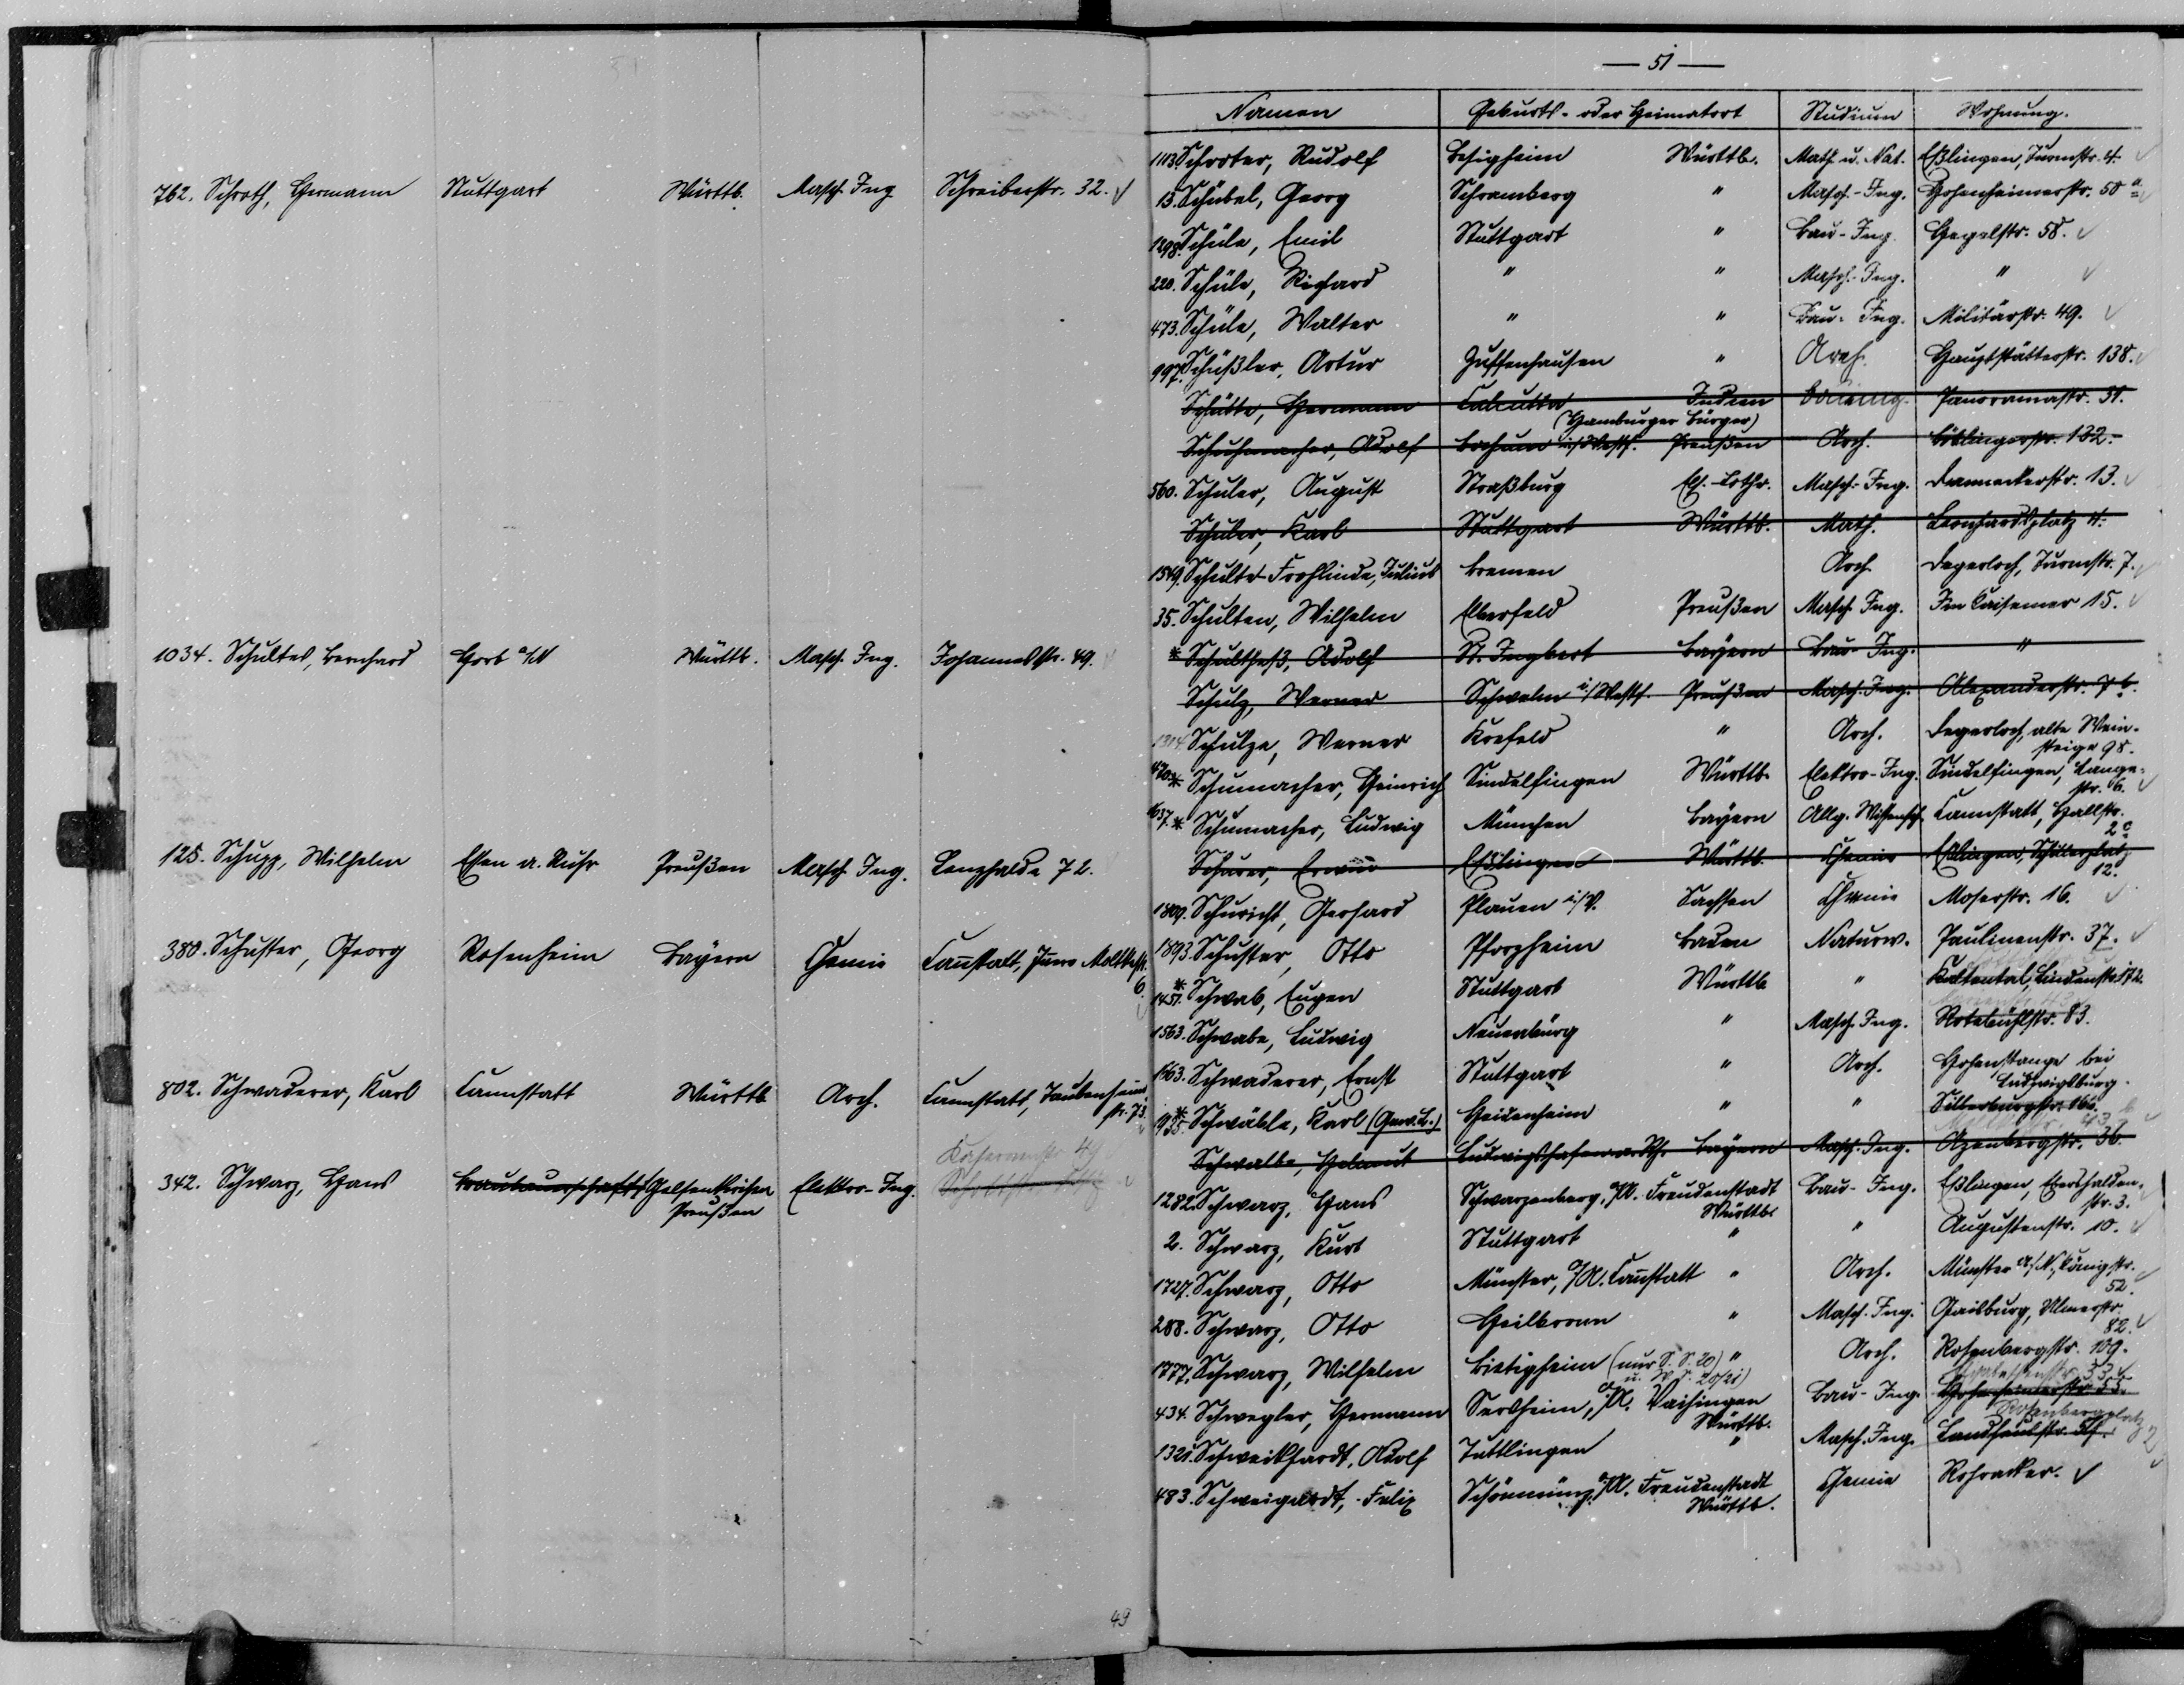 762. Schroth, Hermann Stuttgart Württb. Masch. Ing Schreiberstr. 32. ✓
1034. Schultes, Bernhard Horb a/N Württb. Masch. Ing. Johannesstr. 49.
125. Schupp, Wilhelm Essen a. Ruhr Preußen Masch. Ing. Lenzhalde 72.
380. Schuster, Georg Rosenheim Bayern Chemie Cannstatt, Moltkestr.
6.
802. Schwaderer, Karl Cannstatt Württb Arch. Cannstatt, Taubenheim
str. 73.
Kasernenstr. 49
342. Schwarz, Hans Braubauerschaft Gelsenkirchen Elektro-Ing.
Preußen
49
— 51 —
Namen Geburts- oder Heimatort Studium Wohnung.
1113. Schroter, Rudolf Besigheim Württb. Math. u. Nat. Eßlingen, Turmstr. 4. ✓
13. Schübel, Georg Schramberg " Masch.-Ing. Hohenheimerstr. 50 a
1298. Schüle, Emil Stuttgart " Bau-Ing. Hegelstr. 58. ✓
220. Schüle, Richard " " Masch.-Ing. " ✓
473. Schüle, Walter " " Bau-Ing. Militärstr. 49. ✓
997. Schüßler, Artur Zuffenhausen " Arch. Hauptstätterstr. 138. ✓
Schütte, Hermann Calcutta Indien Bauing. Panoramastr. 31.
(Hamburger Bürger)
Schuhmacher, Adolf Bochum i/Westf. Preußen Arch. Böblingerstr. 132.
560. Schuler, August Straßburg Els.-Lothr. Masch.-Ing. Danneckerstr. 13. ✓
Schuler, Karl Stuttgart Württb. Math. Leonhardsplatz 4.
1549. Schulte-Frohlinde, Julius Bremen Arch. Degerloch, Turmstr. 7.
35. Schulten, Wilhelm Elberfeld Preußen Masch. Ing. Im Kaisemer 15. ✓
* Schultheß, Adolf St. Ingbert Bayern Bau-Ing. "
Schulz, Werner Schwelm i/Westf. Preußen Masch. Ing. Alexanderstr. 7 b.
1314. Schulze, Werner Krefeld " Arch. Degerloch, alte Wein-
steige 98.
470. * Schumacher, Heinrich Sindelfingen Württb. Elektro-Ing. Sindelfingen, Lange-
str. 6. ✓
1637. * Schumacher, Ludwig München Bayern Allg. Wissensch. Cannstatt, Hallstr.
Schurer, Erwin Eßlingen Württb. Chemie Eßlingen, Schillerplatz
12.
1809. Schuricht, Gerhard Plauen i/V. Sachsen Chemie Moserstr. 16. ✓
1893. Schuster, Otto Pforzheim Baden Naturw. Paulinenstr. 37. ✓
* 1451. Schwab, Eugen Stuttgart Württb " Kaltental, Lindenstr. 172.
1563. Schwabe, Ludwig Neuenbürg " Masch. Ing. Rotebühlstr. 83.
1663. Schwaderer, Ernst Stuttgart " Arch. Hohenstange bei
Ludwigsburg.
* 1935. Schwäble, Karl (Gew. L.) Heidenheim " " Silberburgstr. 166.
Schwalbe, Helmut Ludwigshafen a. Rh. Bayern Masch. Ing. Azenbergstr. 36.
1282. Schwarz, Hans Schwarzenberg, O/A. Freudenstadt Bau-Ing. Eßlingen, Ebershalden-
Württb. str. 3.
2. Schwarz, Kurt Stuttgart " " Augustenstr. 10. ✓
1727. Schwarz, Otto Münster, O/A. Cannstatt " Arch. Münster a/N., Königstr.
52. ✓
288. Schwarz, Otto Heilbronn " Masch. Ing. Gaisburg, Ulmerstr.
82. ✓
1777. Schwarz, Wilhelm Bietigheim (nur S. S. 20) " Arch. Rosenbergstr. 109.
u. W. S. 20/21)
434. Schwegler, Hermann Sersheim, O/A. Vaihingen Bau-Ing. Hohenheimerstr. 55.
Württb. Rosenbergplatz 2
1321. Schweikhardt, Adolf Tuttlingen " Masch. Ing. Landhausstr.
483. Schweigardt, Felix Schönmünz, O/A. Freudenstadt Chemie Rohracker. ✓
Württb.